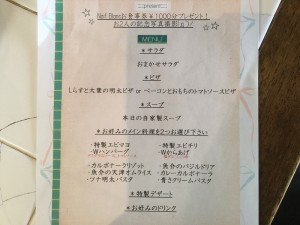 Nof Blancお食事券￥1000分プレゼント!
お2人の記念写真撮影(o^)/
MENU
＊サラダ
おまかせサラダ
＊ピザ
しらすと大葉の明太ピザ or ベーコンとおもちのトマトソースピザ
＊スープ
本日の自家製スープ
＊お好みのメイン料理を2つお選び下さい
・特製エビマヨ ・特製エビチリ
・Wハンバーグ ・Wからあげ
・カルボナーラリゾット ・魚介のバジルドリア
・魚介の天津オムライス ・カレーカルボナーラ
・ツナ明太パスタ ・青さクリームパスタ
＊特製デザート
＊お好みのドリンク